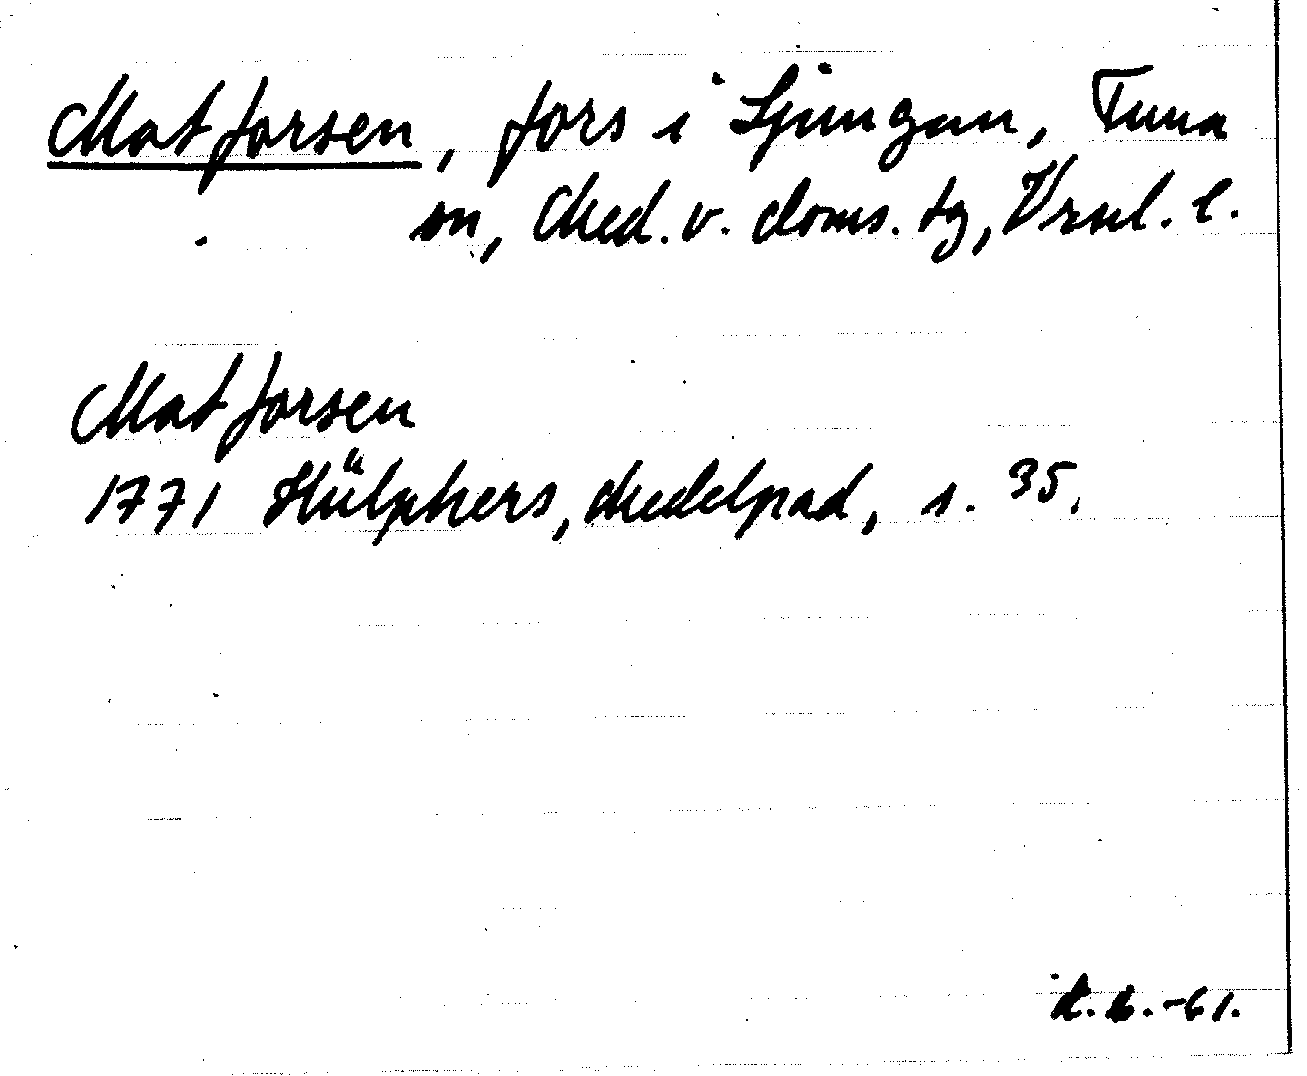 Matforsen, fors i Ljungan, Tuna
sn, Med. v. doms. tg, Vrnl. l.
Matforsen
1771 Hülphers, Medelpad, s. 35.
-61.